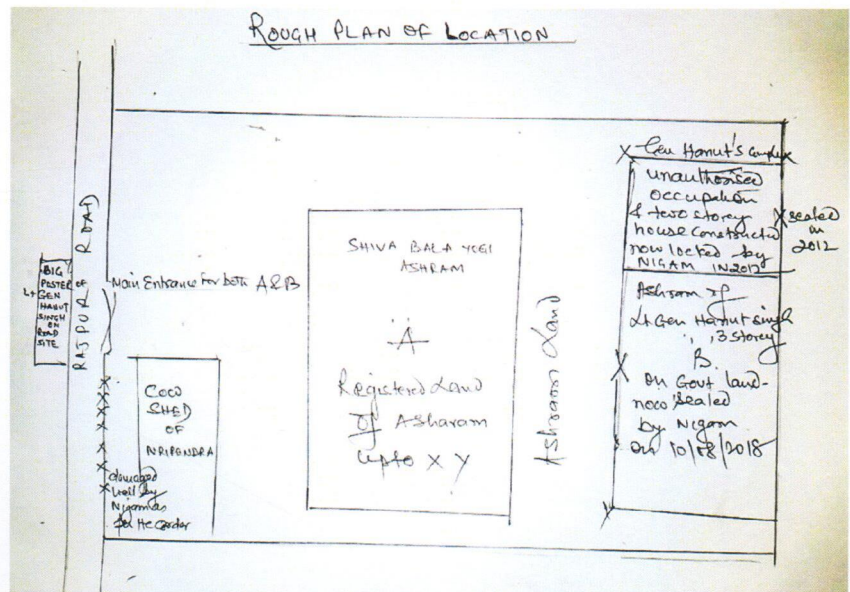 ROUGH PLAN OF LOCATION
BIG
POSTER of
Lt GEN
HANUT
SINGH
ON
ROAD
SITE
RAJPUR ROAD
Main Entrance for both A & B
COW
SHED
OF
NRIPENDRA
damaged
wall by
Nigam as
per HC order
SHIVA BALA YOGI
ASHRAM
A
Registered Land
of Asharam
upto X Y
Ashram Land
X Gen Hanut's X
unauthorised
occupation
& two storey
house constructed
now locked by
NIGAM IN 2012
X sealed
in
2012
Ashram of
Lt Gen Hanut Singh
, , 3 storey
B.
X on Govt land-
now sealed
by Nigam
on 10/08/2018